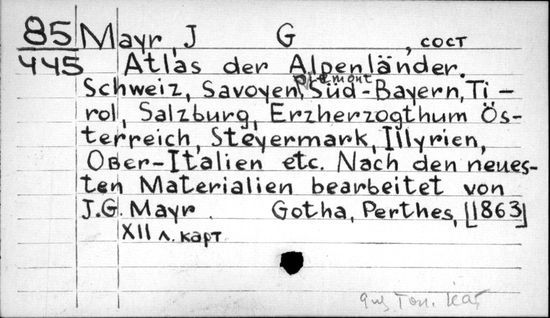 85 Mayr, J G , сост
445 Atlas der Alpenländer.
Piemont
Schweiz, Savoyen, Süd-Bayern, Ti-
rol, Salzburg, Erzherzogthum Ös-
terreich, Steyermark, Illyrien,
Ober-Italien etc. Nach den neues-
ten Materialien bearbeitet von
J.G. Mayr. Gotha, Perthes, [1863]
XII л. карт.